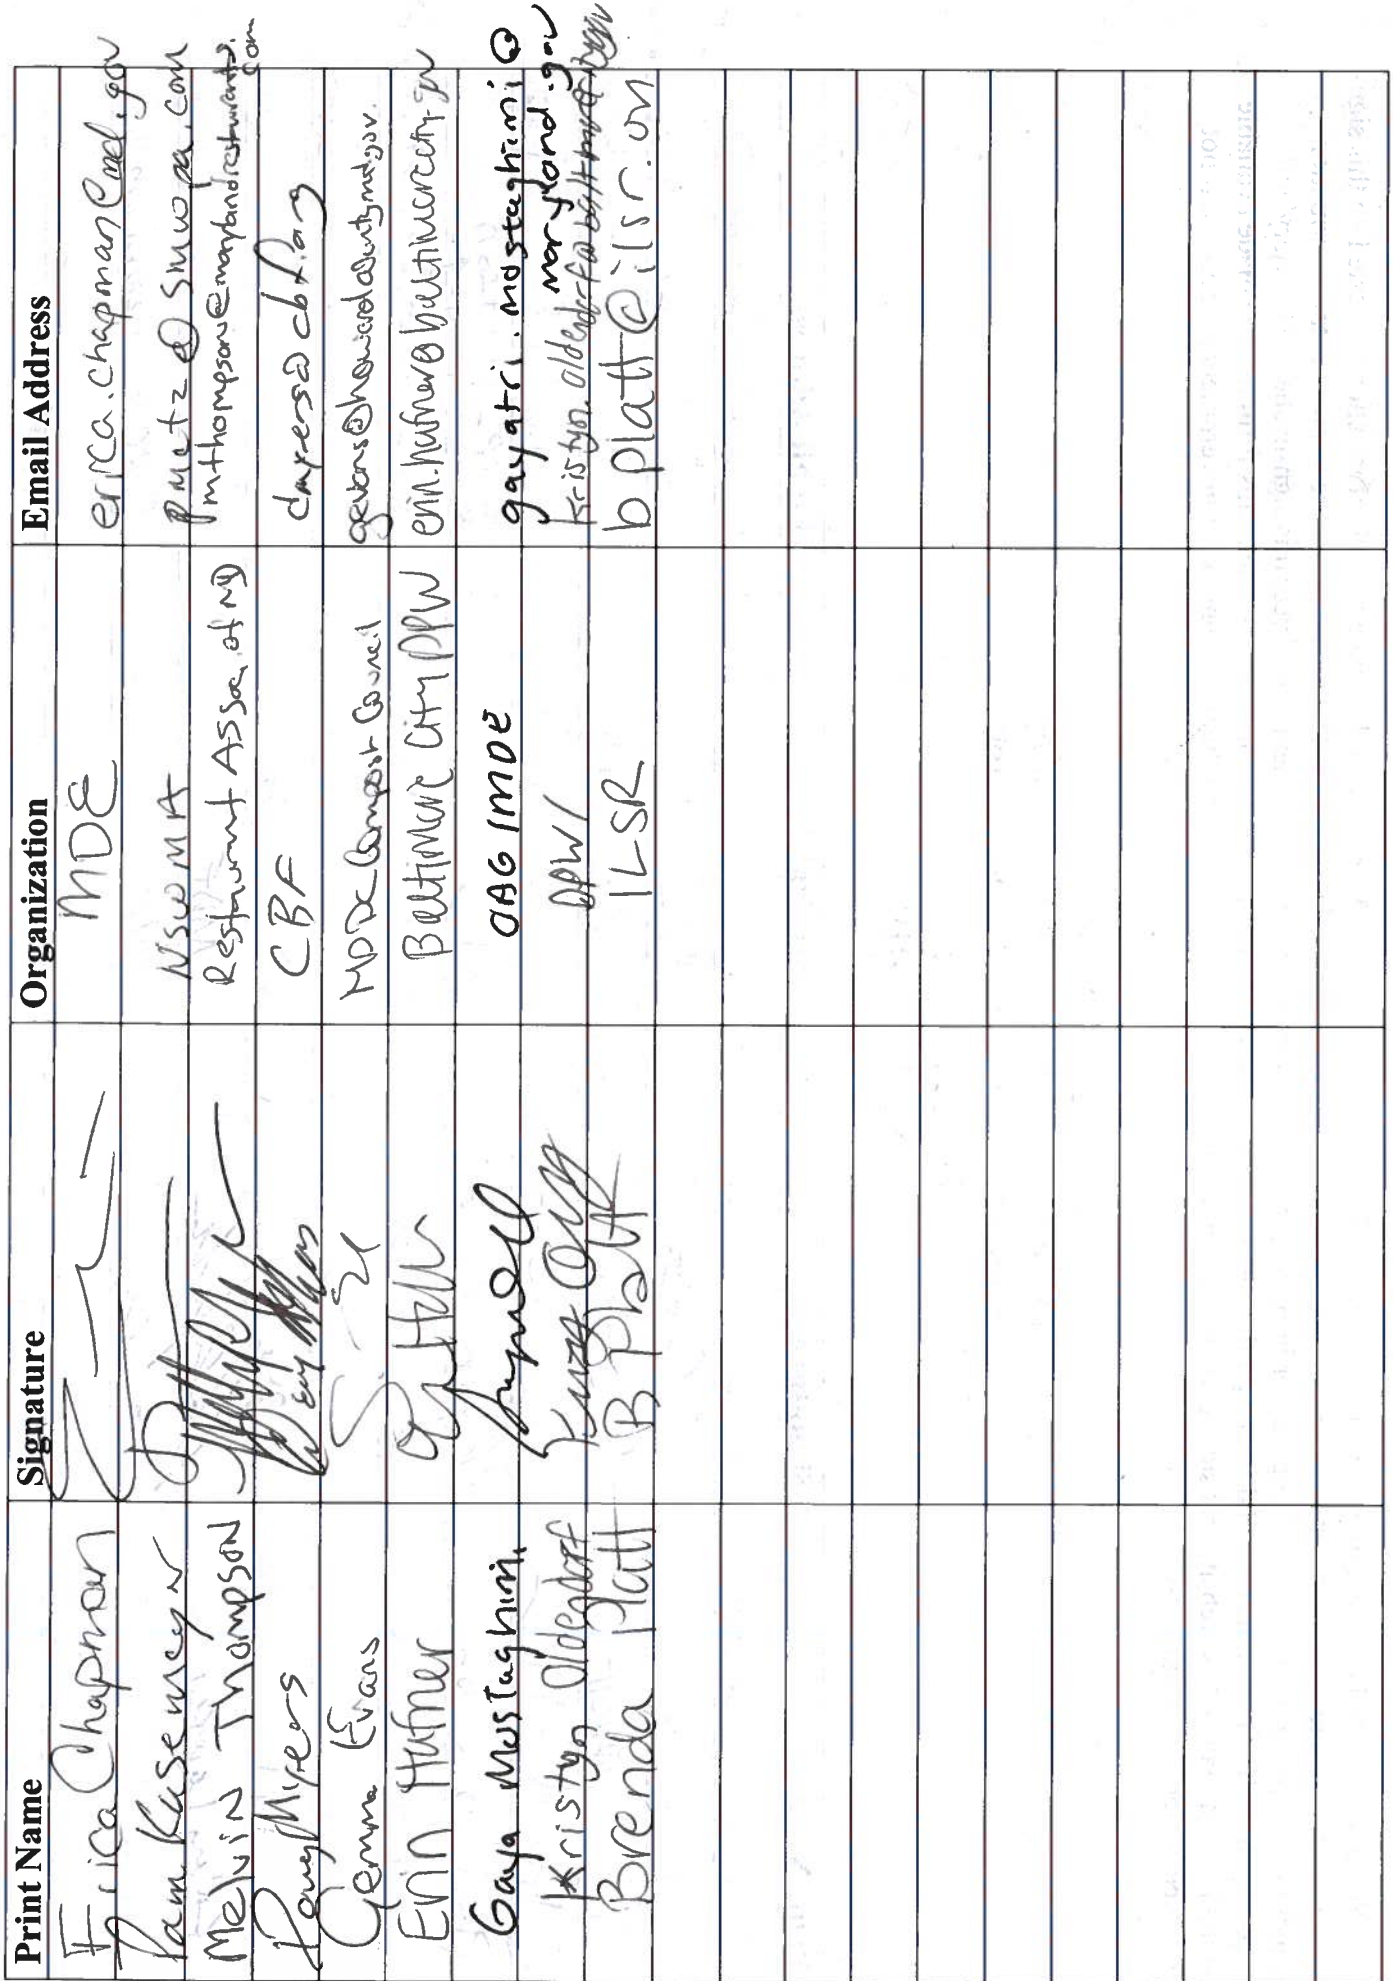 Print Name Signature Organization Email Address
Erica Chapman MDE erica.chapman@md.gov
Pam Kasemeyer NSWMA pmetz@smwpa.com
Melvin Thompson Restaurant Assoc. of MD mthompson@marylandrestaurants.com
Doug Myers CBF dmyers@cbf.org
Gemma Evans MDDC Compost Council gevans@howardcountymd.gov.
Erin Hafner Baltimore City DPW erin.hafner@baltimorecity.gov
Gaya Mostaghimi OAG/MDE gayatri.mostaghimi@maryland.gov
Kristyn Oldendorf DPW
Brenda Platt B Platt ILSR bplatt@ilsr.org